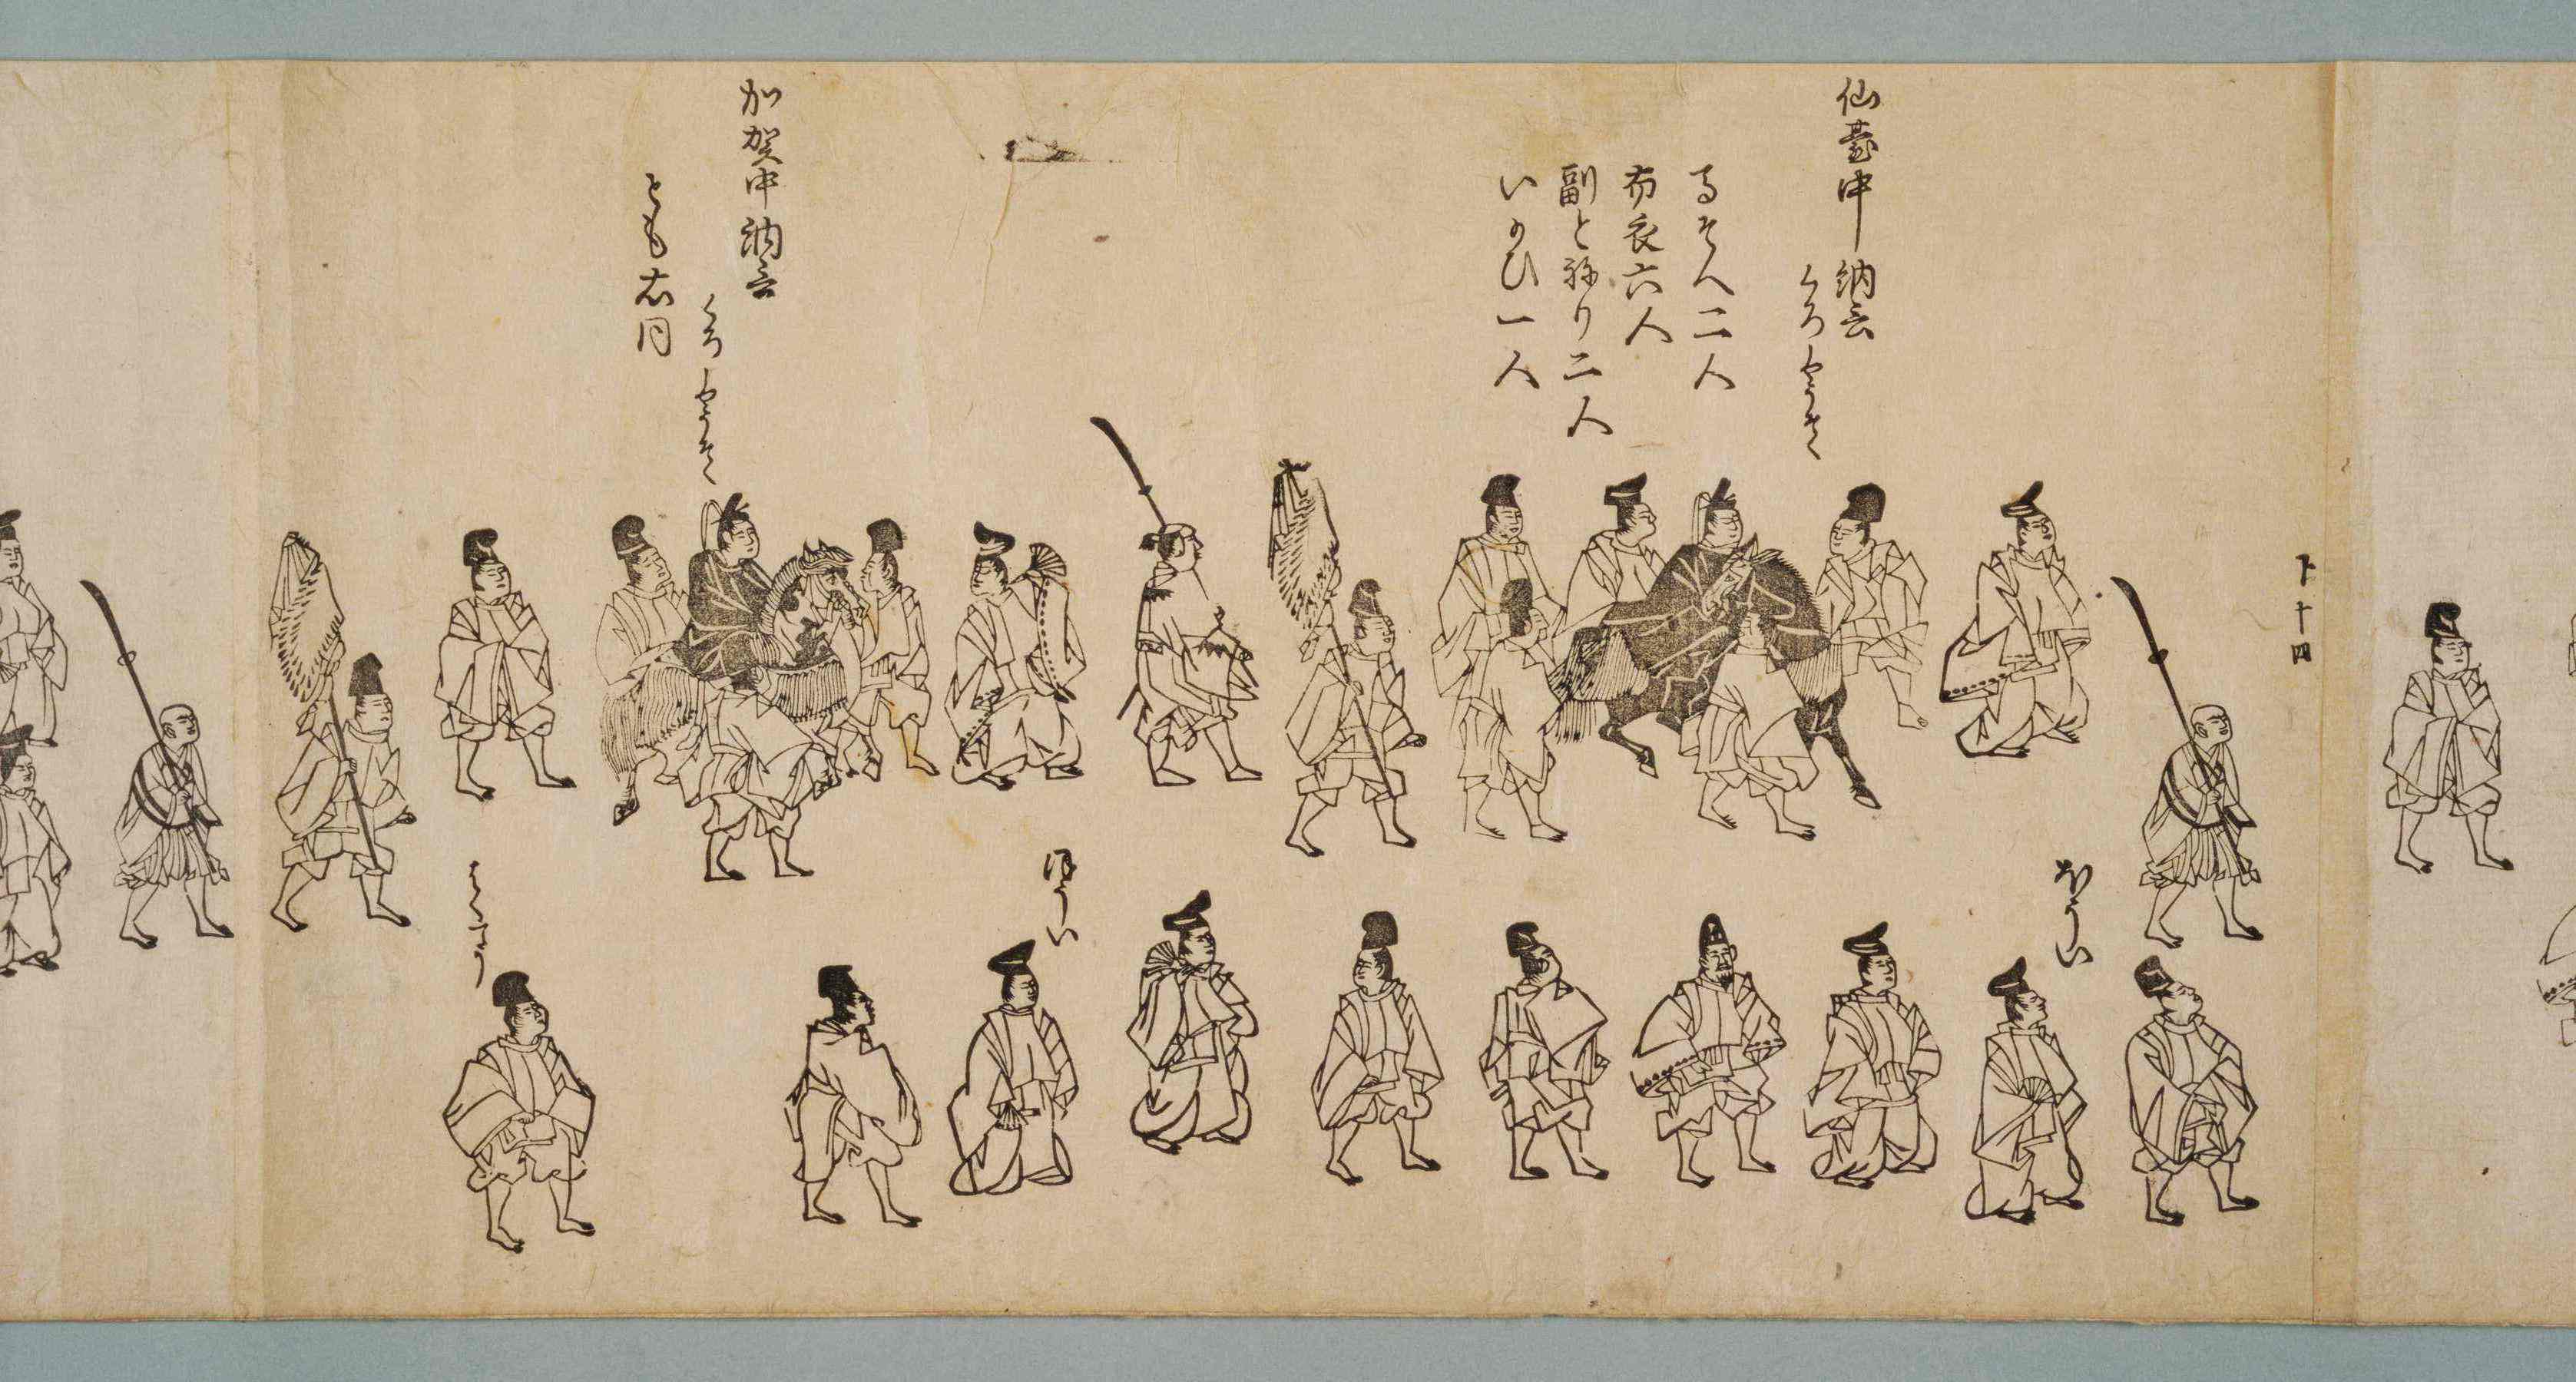 下十四
仙臺中納言
くろしやうそく
馬そへ二人
布衣六人
副とねり二人
いかひ一人
ほうい
加賀中納言
くろしやうそく
とも右同
ほうい
はくてう